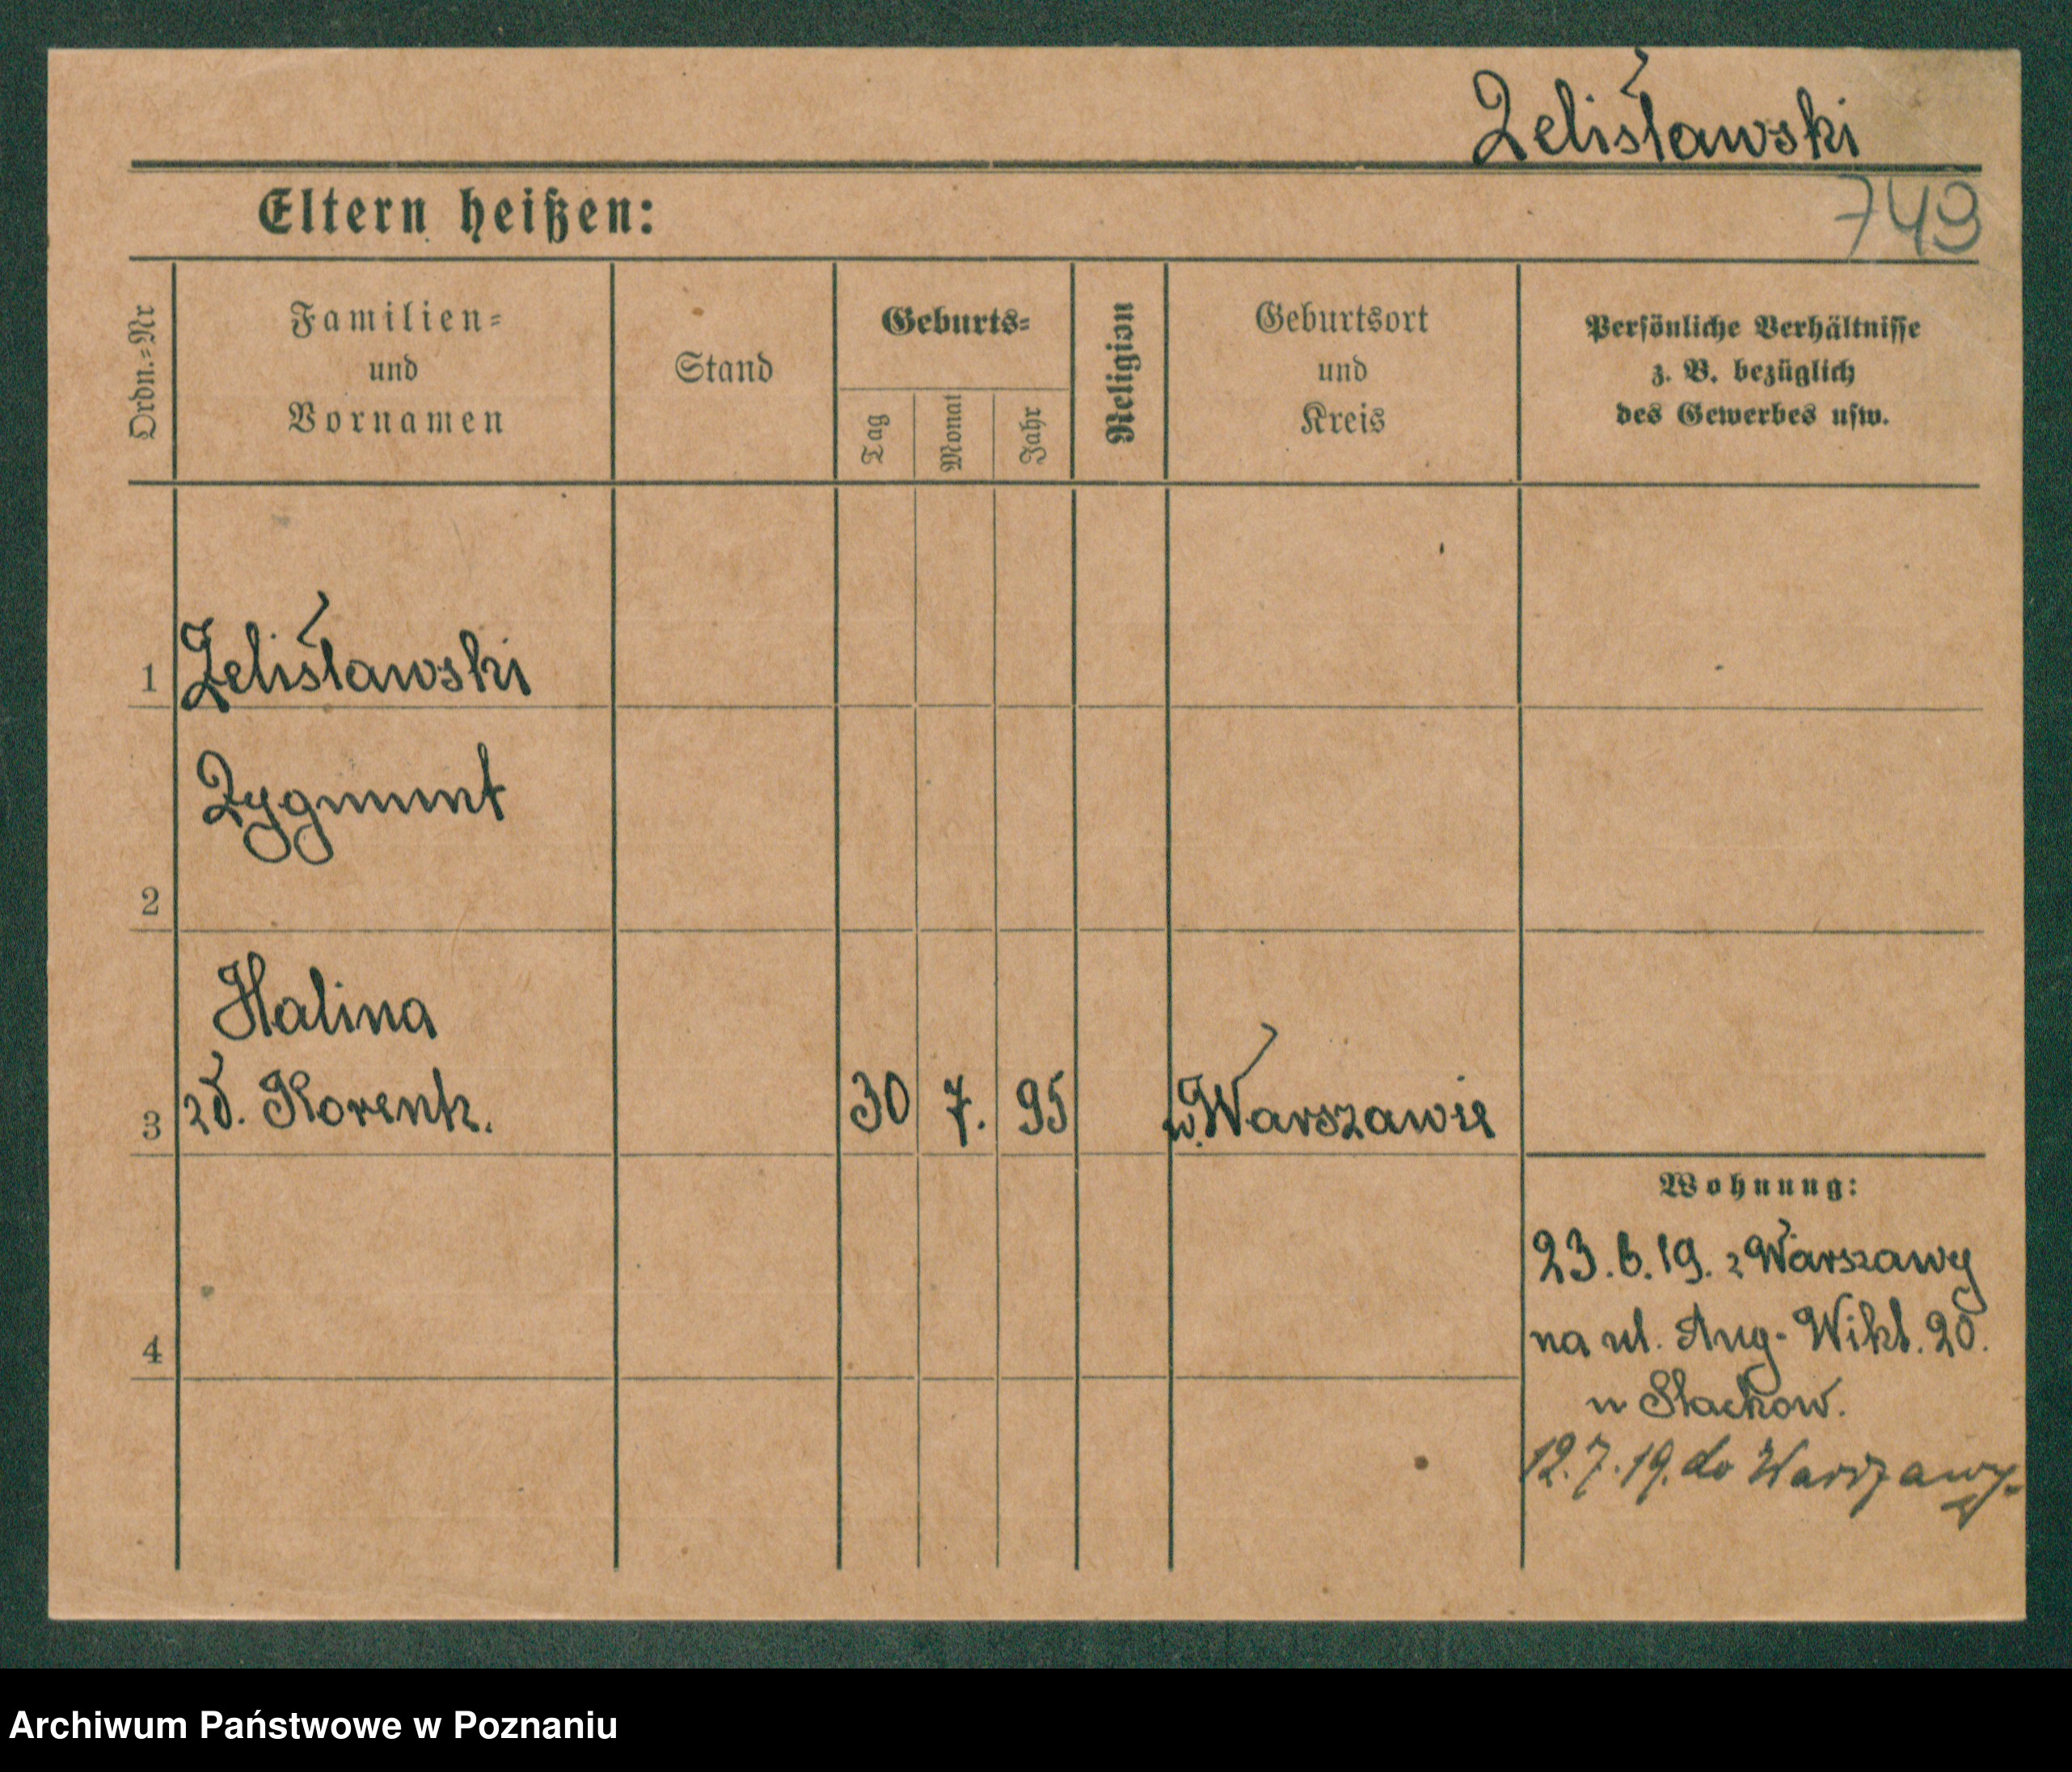 Zelisławski
749
Eltern heißen:
Ordn.=Nr
Familien=
und
Vornamen
Stand
Geburts=
Tag
Monat
Jahr
Religion
Geburtsort
und
Kreis
Persönliche Verhältnisse
z. B. bezüglich
des Gewerbes usw.
1 Zelisławski
Zygmunt
2
Halina
3 zd. Korentz. 30 7. 95 w. Warszawie
Wohnung:
23.6.19. z Warszawy
4
na ul. Aug- Wikt. 20.
12.7.19. do Warszawy.
Archiwum Państwowe w Poznaniu